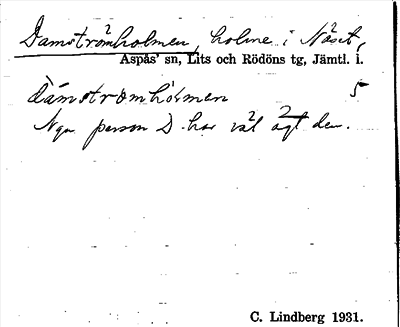 Damströmholmen, holme i Näset,
Aspås' sn, Lits och Rödöns tg, Jämtl. l.
dämströmhòrmen 5
Ngn person D. har väl ägt den.
C. Lindberg 1931.